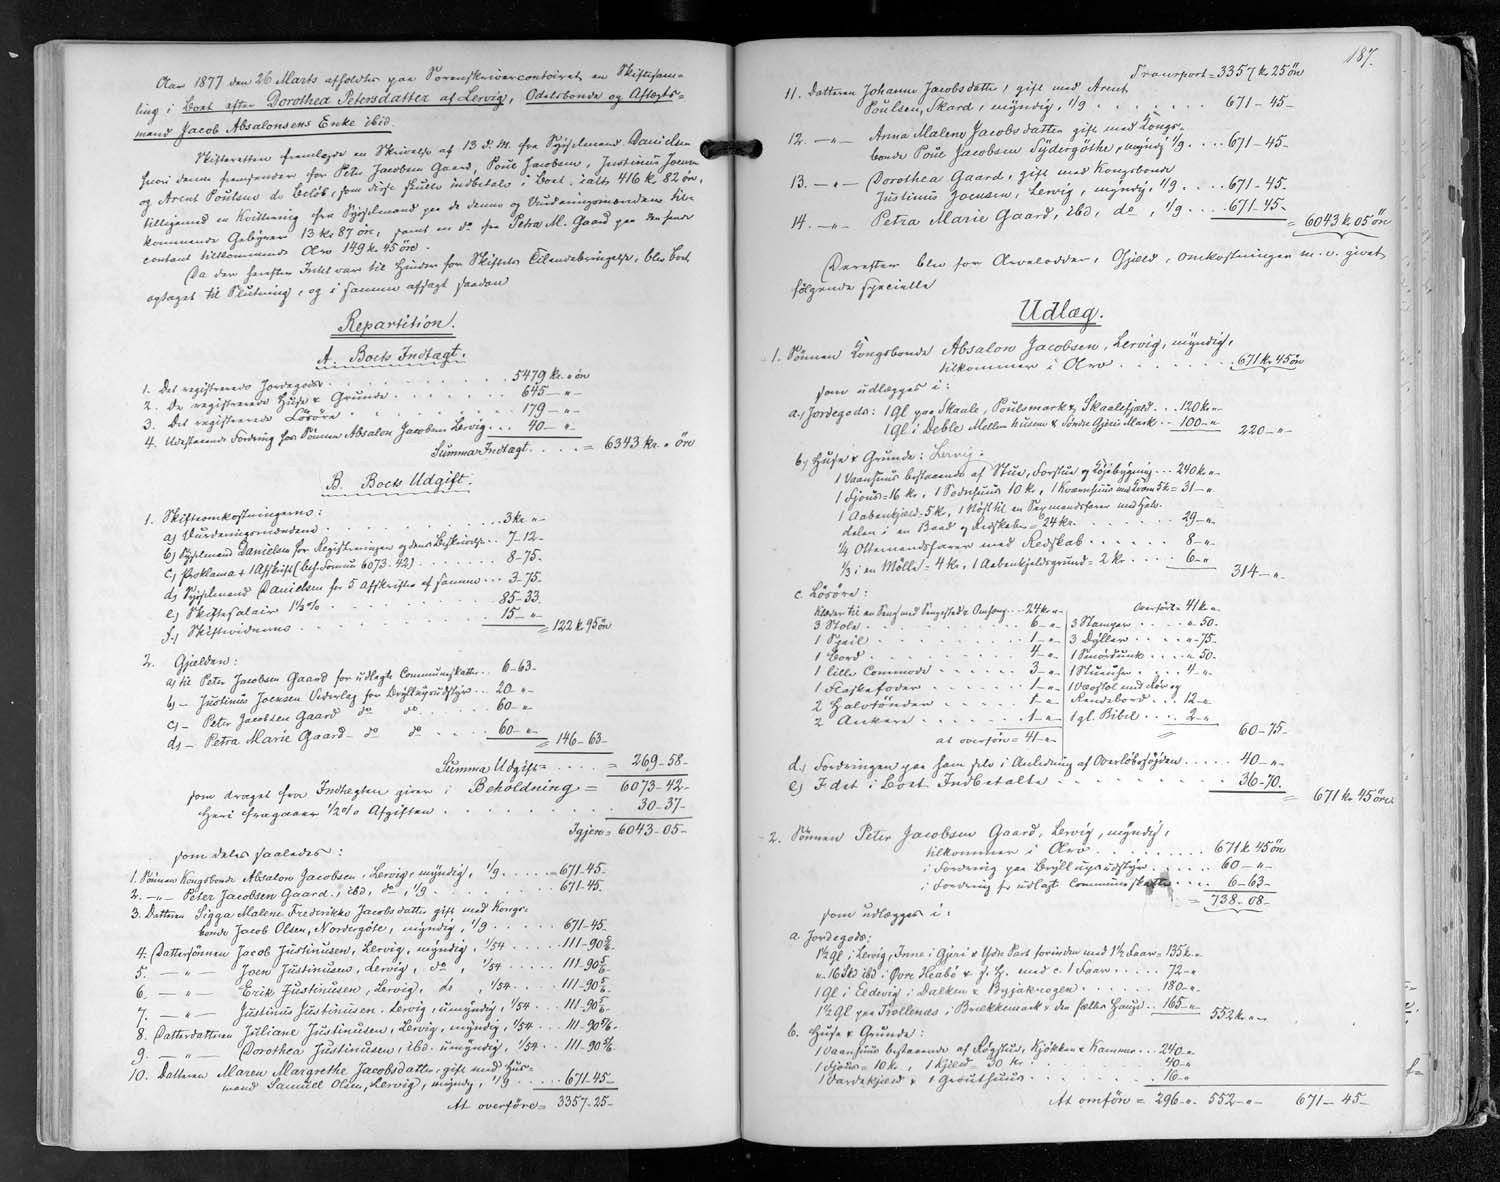 Aar 1877 den 26 Marts afholdtes paa Sorenskrivercontoiret en Skiftesam-
ling i Boet efter Dorothea Petersdatter af Lervig, Odelsbonde og Aftægts-
mand Jacob Absalonsens Enke ibid.
Skifteretten fremlagde en Skrivelse af 13 d. M. fra Sysselmand Danielsen
hvori denne fremsender for Peter Jacobsen Gaard, Poul Jacobsen, Justinus Joensen
og Arent Poulsen de Beløb, som disse skulle indbetale i Boet, ialt 416 kr 82 öre,
tilligemed en Kvittering fra Sysselmand paa de denne og Vurderingsmændene til-
kommende Gebyrer 13 kr 87 öre, samt en do fra Petra M. Gaard paa den hende
contant tilkommende Arv 149 kr 45 öre.
Da der herefter Intet var til Hinder for Skiftets Tilendebringelse, blev Boet
optaget til Slutning, og i samme afsagt saadan
Repartition.
A. Boets Indtægt.
1. Det registrerede Jordegods . . . 5479 kr. " ön
2. De registrerede Huse & Grunde . . . 645 – " –
3. Det registrerede Lösöre . . . 179 – " –
4. Udestaaende Fordring hos Sönnen Absalon Jacobsen Lervig . . . 40 – " –
Summa Indtægt . . . = 6343 kr. " öre
B. Boets Udgift.
1. Skifteomkostningerne:
a) Vurderingsmændene . . . 3 kr " –
b) Sysselmand Danielsen for Registreringen og dens Beskrivelse . . 7–12–
c) Proklama + 1 Afskrift (beh. Formue 6073–42) . . . 8–75–
d) Sysselmand Danielsen for 5 Afskrifter af samme . . . 3–75–
e) Skiftesalair 1½% . . . 85–33
f) Skiftevidnerne . . . 15 – " –
= 122 kr 95 ön
2. Gjælden:
a) til Peter Jacobsen Gaard for udlagte Communeskatter . . 6–63–
b) – Justinus Joensen Vederlag for Bryllupsudstyr . . . 20 – " –
c) – Peter Jacobsen Gaard do do . . . 60 – " –
d) – Petra Marie Gaard – do do . . . 60 – " –
= 146–63–
Summa Udgift = . . . = 269–58–
som draget fra Indtægten giver i Beholdning = 6073–42–
Heri fragaaer ½% Afgiften . . . 30–37–
Igjen = 6043–05–
som deles saaledes:
1. Sönnen Kongsbonde Absalon Jacobsen, Lervig, myndig, 1/9 . . . = 671–45–
2. – " – Peter Jacobsen Gaard, ibid, do, 1/9 . . . 671–45–
3. Datteren Sigga Malene Frederikke Jacobsdatter gift med Kongs-
bonde Jacob Olsen, Nordergöte, myndig, 1/9 . . . 671–45–
4. Dattersönnen Jacob Justinusen, Lervig, myndig, 1/54 . . . 111–90 5/6
5. – " – Joen Justinusen, Lervig, do, 1/54 . . . 111–90 5/6
6. – " – Erik Justinusen, Lervig, do, 1/54 . . . 111–90 5/6
7. – " – Justinus Justinusen, Lervig, umyndig, 1/54 . . . 111–90 5/6
8. Datterdatteren Juliane Justinusen, Lervig, myndig, 1/54 . . 111–90 5/6
9. – " – Dorothea Justinusen, ibd. umyndig, 1/54 . . 111–90 5/6
10. Datteren Maren Margrethe Jacobsdatter, gift med Hus-
mand Samuel Olsen, Lervig, myndig, 1/9 . . . 671–45–
At overføre = 3357–25–
187.
Transport = 3357 kr 25 ön
11. Datteren Johanne Jacobsdatter, gift med Arent
Poulsen, Skard, myndig, 1/9 . . . 671–45–
12. – " – Anna Malene Jacobsdatter gift med Kongs-
bonde Poul Jacobsen Sydergöthe, myndig 1/9 . . . 671–45–
13. – " – Dorothea Gaard, gift med Kongsbonde
Justinus Joensen, Lervig, myndig, 1/9 . . . 671–45–
14. – " – Petra Marie Gaard, ibd, do, 1/9 . . . 671–45–
= 6043 kr 05 öre
Derefter blev for Arvelodder, Gjæld, Omkostninger m. v. givet
følgende specielle
Udlæg.
1. Sönnen Kongsbonde Absalon Jacobsen, Lervig, myndig,
tilkommer i Arv . . . 671 kr 45 ön
som udlægges i:
a. Jordegods: 1 Gl paa Skaale, Poulsmark & Skaalefjæld . . . 120 kr "
1 Gl i Deble Mellem husene & Söndr Gjerismark . . 100 – " 220 – " –
b) Huse & Grunde: Lervig:
1 Vaanhuus bestaaende af Stue, Forstue og Köjebygning . . . 240 kr "
1 Fjous = 16 kr, 1 Sodnhuus 10 kr, 1 Kvænhuus med Kværn 5 k = 31 – "
1 Aabenkjeld = 5 kr, 1 Nöst til en Sexmandsfarer med Halv-
delen i en Baad og Redskaber = 24 kr. . . . 29 – "
¼ Ottemandsfarer med Redskab . . . 8 – "
1/3 i en Mölle = 4 kr, 1 Aabenkjeldsgrund = 2 kr . . . 6 – " 314 – " –
c. Lösöre:
Klæder til en Seng med Sengested & Omhæng . . . 24 kr "
3 Stole . . . 6 – "
1 Speil . . . 1 – "
1 Bord . . . 4 – "
1 lille Commode . . . 3 – "
1 Flaskefoder . . . 1 – "
2 Halvtönder . . . 1 – "
2 Ankere . . . 1 – "
at overføre = 41 – "
Overfört = 41 kr "
3 Stamper . . . " 50–
3 Dyller . . . " –75–
1 Smördunk . . . " 50–
1 . . . 4 – "
1 Vævstol med tilhør og
Rendebord . . . 12 – "
1 gl. Bibel . . . 2 – " 60–75–
d. Fordringen paa ham selv i Anledning af Overløbsbygden . . . 40 – " –
e) I det i Boet Indbetalte . . . 36–70.
= 671 kr 45 öre
2. Sönnen Peter Jacobsen Gaard, Lervig, myndig,
tilkommer i Arv . . . 671 k 45 ön
i Fordring paa Bryllupsudstyr . . . 60 – " –
i Fordring for udlagt Communeskatte . . . 6–63–
= 738–08–
som udlægges i:
a. Jordegods:
1½ Gl i Lervig, Inne i Gjeri & Ydre Part forinden med 1½ Faar = 135 k "
" 16 Sk ibd i Övre Heabö & f. H. med c. 1 Faar . . . 72 – "
1 Gl i Eldevig i Dalken & Byjakrogen . . . 180 – "
1½ Gl paa Trollenæs i Brækkemark & den fælles Hauge . . 165 – " 552 kr " –
b. Huse & Grunde:
1 Vaanhuus bestaaende af Røgstue, Kjökken & Kammer . . . 240 – "
1 Fjous = 10 kr, 1 Kjeld = 30 kr . . . 40 – "
1 Vardekjeld & 1 Grouthuus . . . 16 – "
At omføre = 296 – " 552 – " – 671–45–